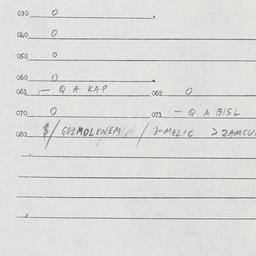 030 0
040 0
050 0
060 0
061 - Q A KAP 062 0
070 0 071 - Q A BISL
080 $/ / )-MELIC > ZAMCU